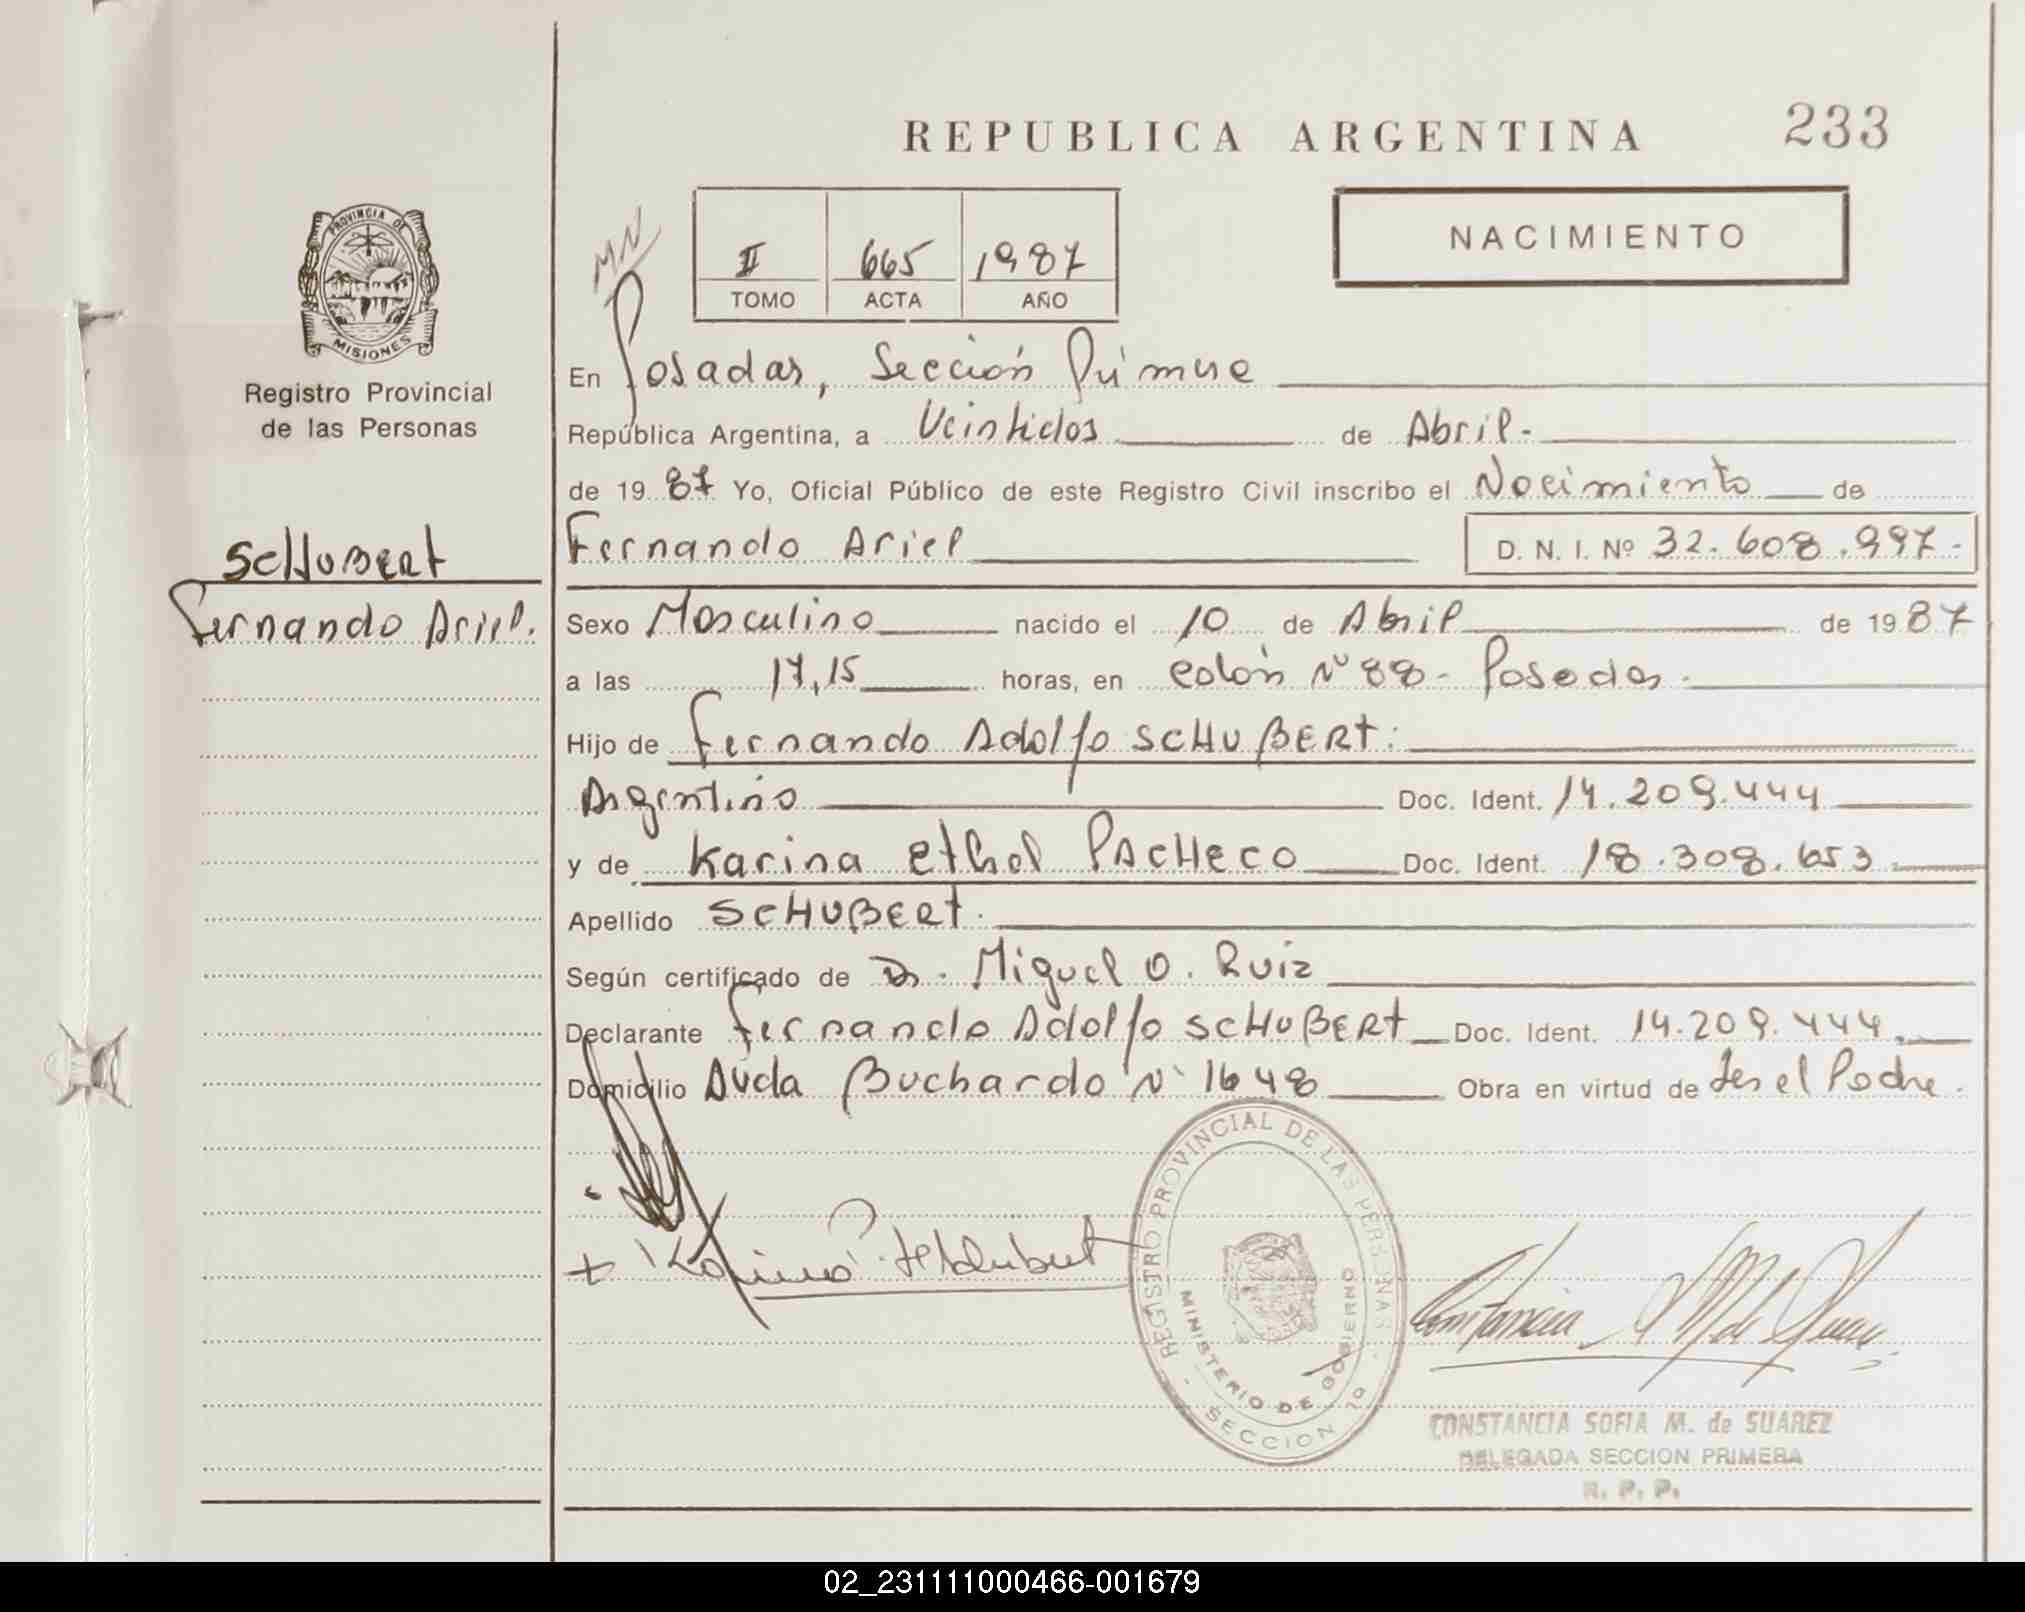 REPUBLICA ARGENTINA 233
NACIMIENTO
II 665 1987
TOMO ACTA AÑO
PROVINCIA DE
MISIONES
Registro Provincial
de las Personas
SCHUBERT
Fernando Ariel.
En Posadas, Sección Primera
República Argentina, a Veintidos de Abril.-
de 1987 Yo, Oficial Público de este Registro Civil inscribo el Nacimiento de
Fernando Ariel D. N. I. Nº 32.608.997.-
Sexo Masculino nacido el 10 de Abril de 1987
a las 17,15 horas, en Colón Nº 88- Posadas.
Hijo de Fernando Adolfo SCHUBERT:
Argentino Doc. Ident. 14.209.444
y de Karina Ethel PACHECO Doc. Ident. 18.308.653.
Apellido SCHUBERT.
Según certificado de Dr. Miguel O. Ruiz
Declarante Fernando Adolfo SCHUBERT Doc. Ident. 14.209.444.
Domicilio Avda Buchardo Nº 1648 Obra en virtud de ser el Padre.
REGISTRO PROVINCIAL DE LAS PERSONAS
MINISTERIO DE GOBIERNO
SECCION 1a
CONSTANCIA SOFIA M. de SUAREZ
DELEGADA SECCION PRIMERA
R. P. P.
02_231111000466-001679